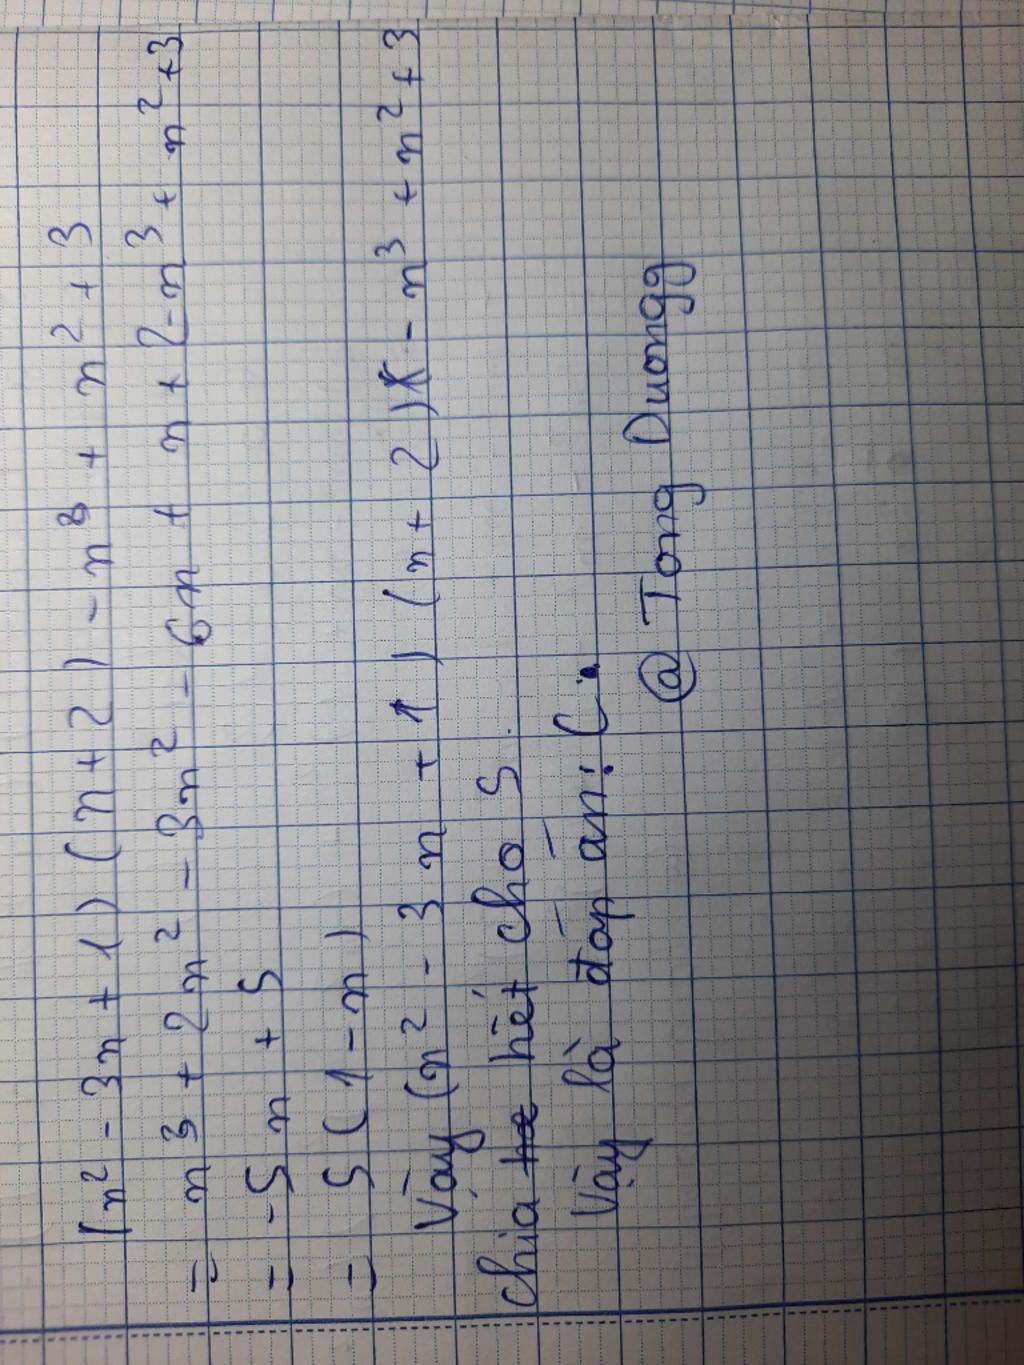 (n² - 3n + 1) (n + 2) - n³ + n² + 3
= n³ + 2n² - 3n² - 6n + n + 2 - n³ + n² + 3
= -5n + 5
= 5 (1 - n)
Vậy (n² - 3n + 1) (n + 2) - n³ + n² + 3
chia hết cho 5.
Vậy là đáp án: C.
@ Tong Duongg